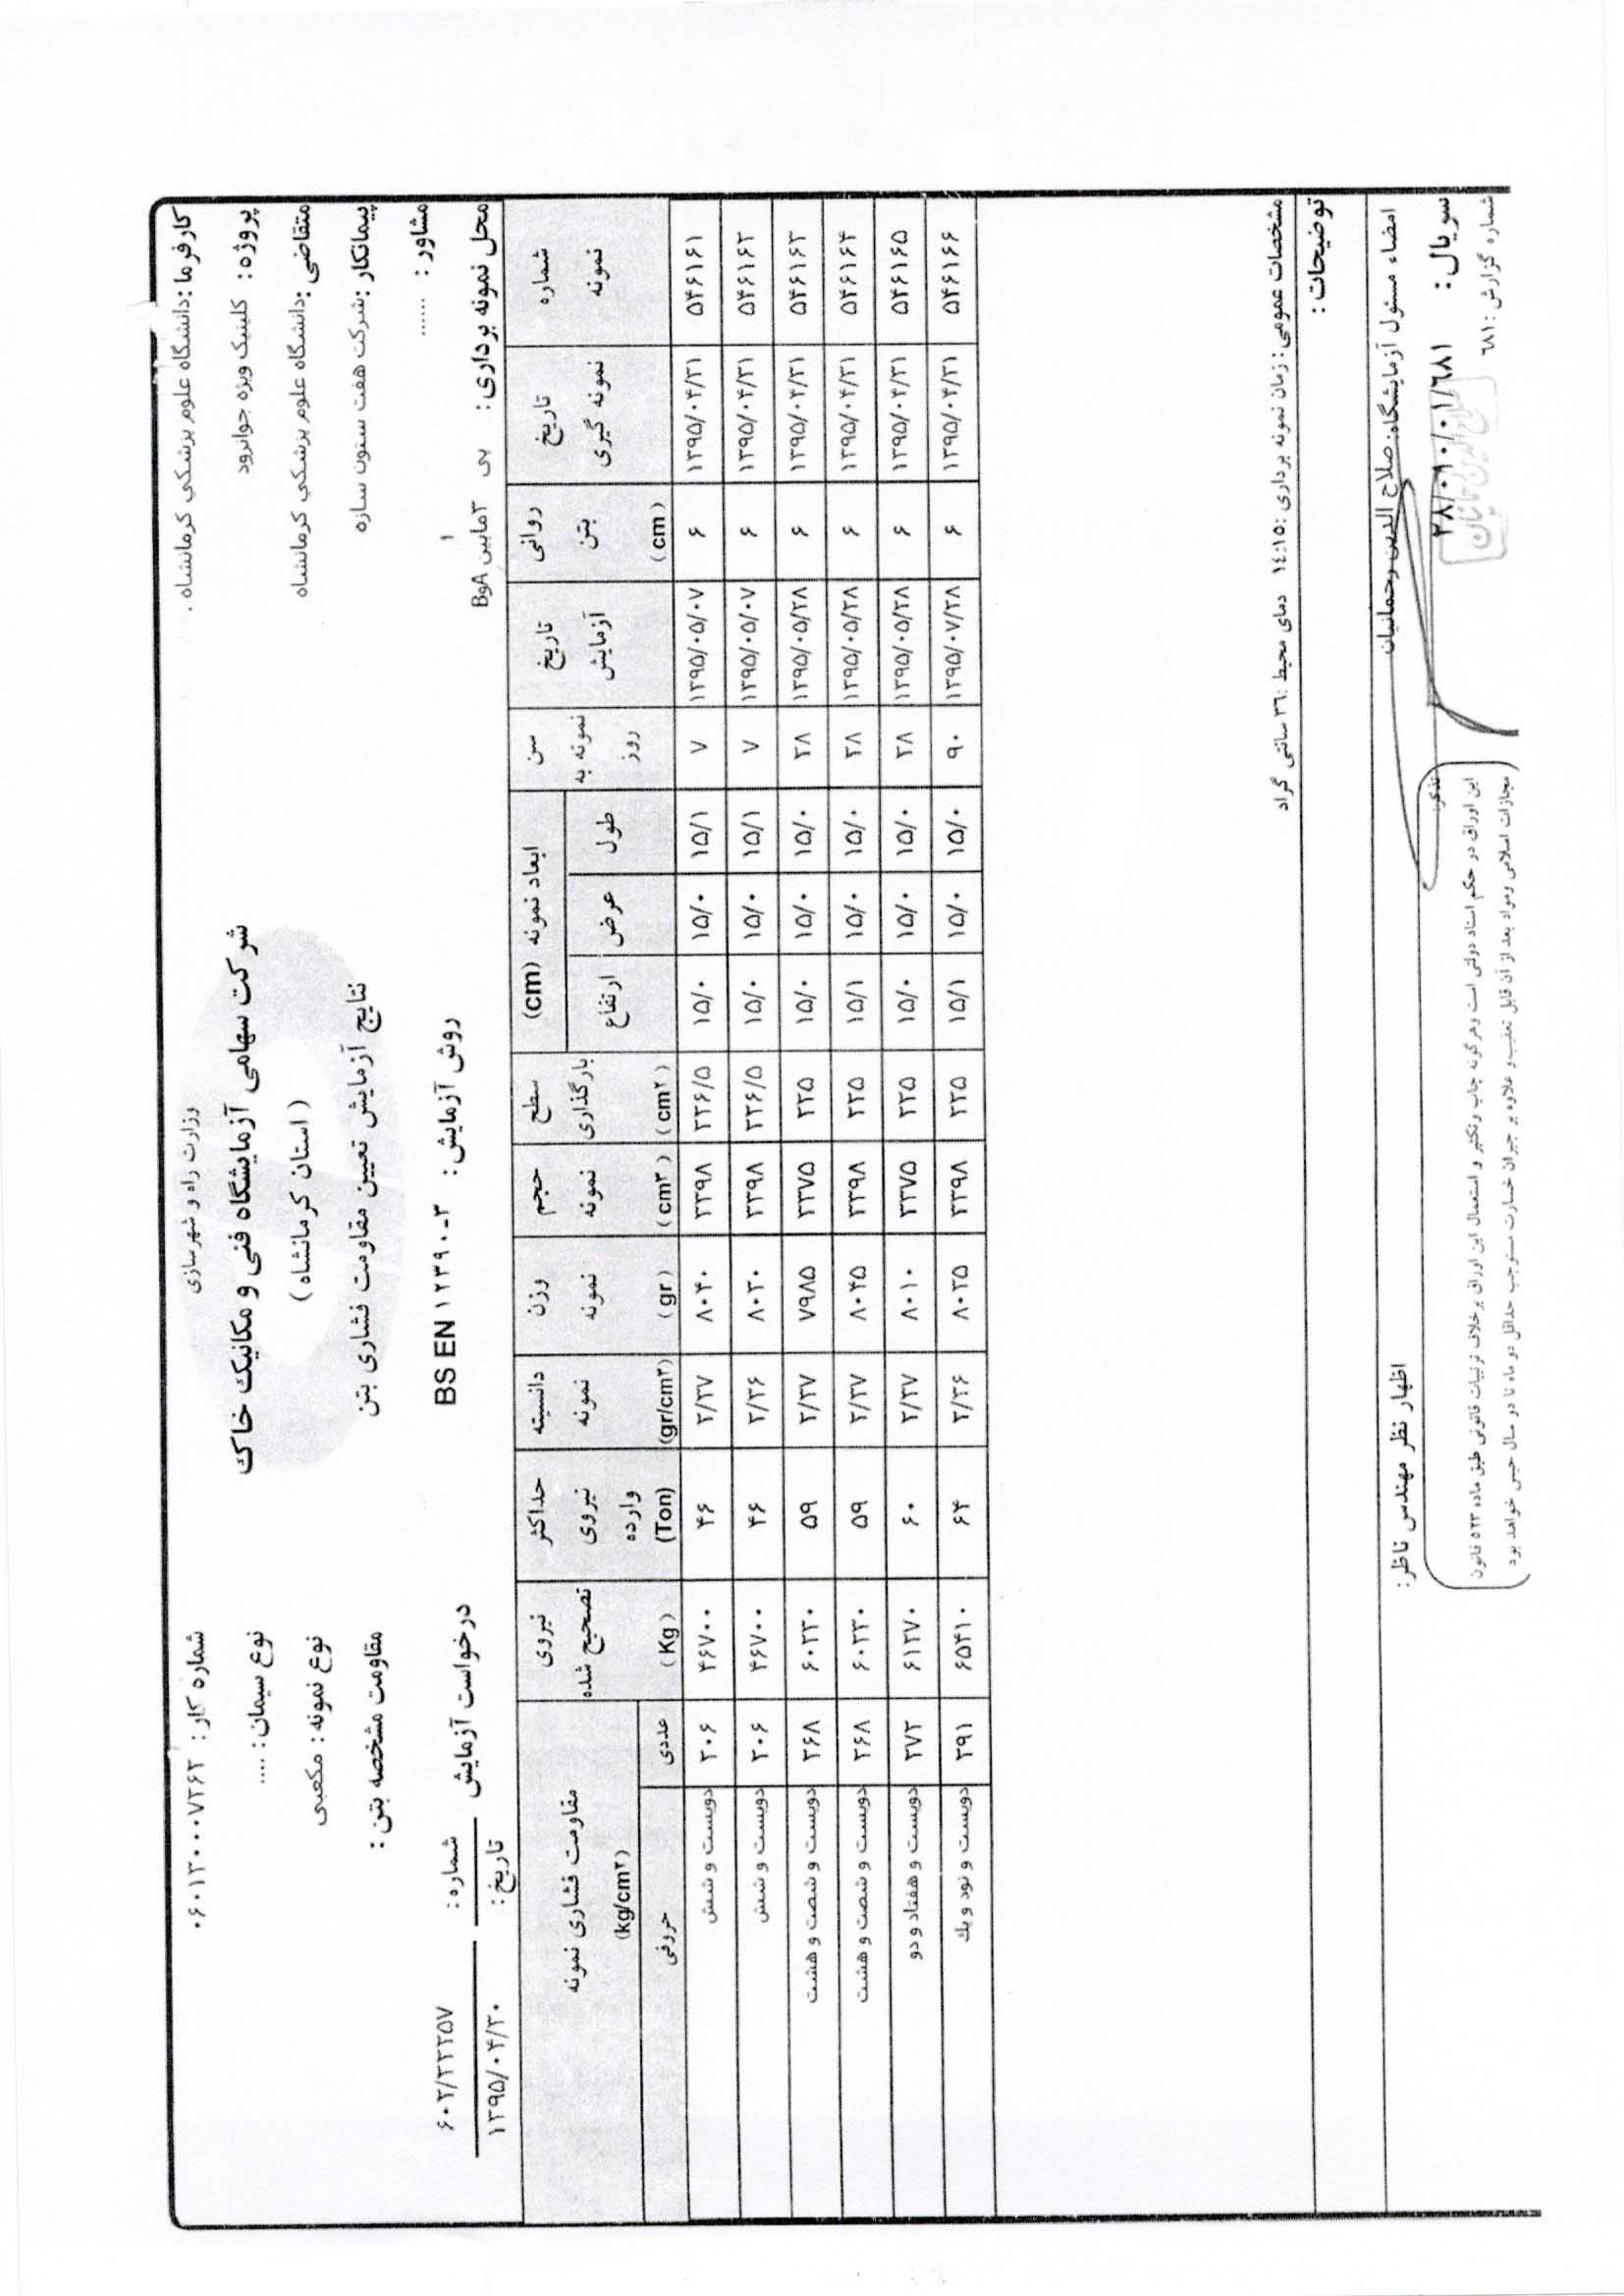 وزارت راه و شهرسازی
شرکت سهامی آزمایشگاه فنی و مکانیک خاک
( استان کرمانشاه )
نتایج آزمایش تعیین مقاومت فشاری بتن
روش آزمایش : BS EN ۱۲۳۹۰-۳
کارفرما : دانشگاه علوم پزشکي کرمانشاه .
پروژه : کلینیک ویژه جوانرود
متقاضی : دانشگاه علوم پزشکي کرمانشاه
پیمانکار : شرکت هفت ستون سازه
مشاور : .....
محل نمونه برداری : پی ۳مابین BوA
۱
شماره کار : ۰۶۰۱۳۰۰۰۷۲۶۳
نوع سیمان : ....
نوع نمونه : مکعبی
مقاومت مشخصه بتن :
درخواست آزمایش
شماره : ۶۰۲/۲۲۲۵۷
تاریخ : ۱۳۹۵/۰۴/۳۰
شماره نمونه | تاریخ نمونه گیری | روانی بتن (cm) | تاریخ آزمایش | سن نمونه به روز | ابعاد نمونه (cm) طول عرض ارتفاع | سطح بارگذاری (cm۲) | حجم نمونه (cm۳) | وزن نمونه (gr) | دانسیته نمونه (gr/cm۳) | حداکثر نیروی وارده (Ton) | نیروی تصحیح شده (Kg) | مقاومت فشاری نمونه (kg/cm۲) عددی حروفی
۵۴۶۱۶۱ ۱۳۹۵/۰۴/۳۱ ۶ ۱۳۹۵/۰۵/۰۷ ۷ ۱۵/۱ ۱۵/۰ ۱۵/۰ ۲۲۶/۵ ۳۳۹۸ ۸۰۴۰ ۲/۳۷ ۴۶ ۴۶۷۰۰ ۲۰۶ دویست و شش
۵۴۶۱۶۲ ۱۳۹۵/۰۴/۳۱ ۶ ۱۳۹۵/۰۵/۰۷ ۷ ۱۵/۱ ۱۵/۰ ۱۵/۰ ۲۲۶/۵ ۳۳۹۸ ۸۰۳۰ ۲/۳۶ ۴۶ ۴۶۷۰۰ ۲۰۶ دویست و شش
۵۴۶۱۶۳ ۱۳۹۵/۰۴/۳۱ ۶ ۱۳۹۵/۰۵/۲۸ ۲۸ ۱۵/۰ ۱۵/۰ ۱۵/۰ ۲۲۵ ۳۳۷۵ ۷۹۸۵ ۲/۳۷ ۵۹ ۶۰۲۳۰ ۲۶۸ دویست و شصت و هشت
۵۴۶۱۶۴ ۱۳۹۵/۰۴/۳۱ ۶ ۱۳۹۵/۰۵/۲۸ ۲۸ ۱۵/۰ ۱۵/۰ ۱۵/۱ ۲۲۵ ۳۳۹۸ ۸۰۴۵ ۲/۳۷ ۵۹ ۶۰۲۳۰ ۲۶۸ دویست و شصت و هشت
۵۴۶۱۶۵ ۱۳۹۵/۰۴/۳۱ ۶ ۱۳۹۵/۰۵/۲۸ ۲۸ ۱۵/۰ ۱۵/۰ ۱۵/۰ ۲۲۵ ۳۳۷۵ ۸۰۱۰ ۲/۳۷ ۶۰ ۶۱۲۷۰ ۲۷۲ دویست و هفتاد و دو
۵۴۶۱۶۶ ۱۳۹۵/۰۴/۳۱ ۶ ۱۳۹۵/۰۷/۲۸ ۹۰ ۱۵/۰ ۱۵/۰ ۱۵/۱ ۲۲۵ ۳۳۹۸ ۸۰۲۵ ۲/۳۶ ۶۴ ۶۵۴۱۰ ۲۹۱ دویست و نود و یك
مشخصات عمومی : زمان نمونه برداری :۱٤:۱٥ دمای محیط :۳٦ سانتی گراد
توضیحات :
امضاء مسئول آزمایشگاه: صلاح الدین رحمانیان
اظهار نظر مهندس ناظر:
سریال : ۲۸/۰۱۰/۰۱/۶۸۱
شماره گزارش : ٦٨١
تذکر:
این اوراق در حکم اسناد دولتی است وهرگونه چاپ وتکثیر و استعمال این اوراق برخلاف ترتیبات قانونی طبق ماده ۵۲۳ قانون
مجازات اسلامی ومواد بعد از آن قابل تعقیب و علاوه بر جبران خسارت مستوجب حداقل دو ماه تا دو سال حبس خواهد بود